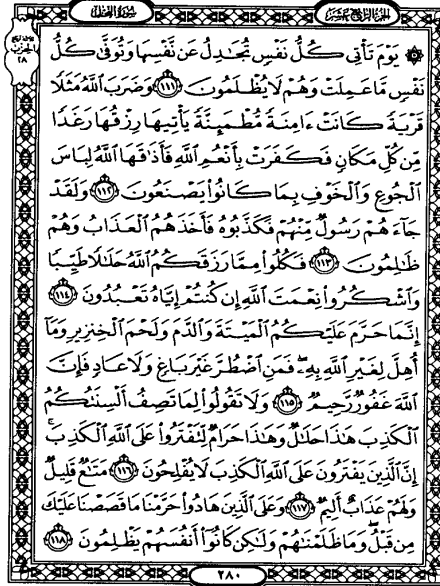 الجزء الرابع عشر
سورة النحل
۞ يَوْمَ تَأْتِى كُلُّ نَفْسٍ تُجَٰدِلُ عَن نَّفْسِهَا وَتُوَفَّىٰ كُلُّ
نَفْسٍ مَّا عَمِلَتْ وَهُمْ لَا يُظْلَمُونَ ١١١ وَضَرَبَ ٱللَّهُ مَثَلًا
قَرْيَةً كَانَتْ ءَامِنَةً مُّطْمَئِنَّةً يَأْتِيهَا رِزْقُهَا رَغَدًا
مِّن كُلِّ مَكَانٍ فَكَفَرَتْ بِأَنْعُمِ ٱللَّهِ فَأَذَٰقَهَا ٱللَّهُ لِبَاسَ
ٱلْجُوعِ وَٱلْخَوْفِ بِمَا كَانُوا۟ يَصْنَعُونَ ١١٢ وَلَقَدْ
جَآءَهُمْ رَسُولٌ مِّنْهُمْ فَكَذَّبُوهُ فَأَخَذَهُمُ ٱلْعَذَابُ وَهُمْ
ظَٰلِمُونَ ١١٣ فَكُلُوا۟ مِمَّا رَزَقَكُمُ ٱللَّهُ حَلَٰلًا طَيِّبًا
وَٱشْكُرُوا۟ نِعْمَتَ ٱللَّهِ إِن كُنتُمْ إِيَّاهُ تَعْبُدُونَ ١١٤
إِنَّمَا حَرَّمَ عَلَيْكُمُ ٱلْمَيْتَةَ وَٱلدَّمَ وَلَحْمَ ٱلْخِنزِيرِ وَمَآ
أُهِلَّ لِغَيْرِ ٱللَّهِ بِهِۦ فَمَنِ ٱضْطُرَّ غَيْرَ بَاغٍ وَلَا عَادٍ فَإِنَّ
ٱللَّهَ غَفُورٌ رَّحِيمٌ ١١٥ وَلَا تَقُولُوا۟ لِمَا تَصِفُ أَلْسِنَتُكُمُ
ٱلْكَذِبَ هَٰذَا حَلَٰلٌ وَهَٰذَا حَرَامٌ لِّتَفْتَرُوا۟ عَلَى ٱللَّهِ ٱلْكَذِبَ ۚ
إِنَّ ٱلَّذِينَ يَفْتَرُونَ عَلَى ٱللَّهِ ٱلْكَذِبَ لَا يُفْلِحُونَ ١١٦ مَتَٰعٌ قَلِيلٌ
وَلَهُمْ عَذَابٌ أَلِيمٌ ١١٧ وَعَلَى ٱلَّذِينَ هَادُوا۟ حَرَّمْنَا مَا قَصَصْنَا عَلَيْكَ
مِن قَبْلُ ۖ وَمَا ظَلَمْنَٰهُمْ وَلَٰكِن كَانُوٓا۟ أَنفُسَهُمْ يَظْلِمُونَ ١١٨
٢٨٠